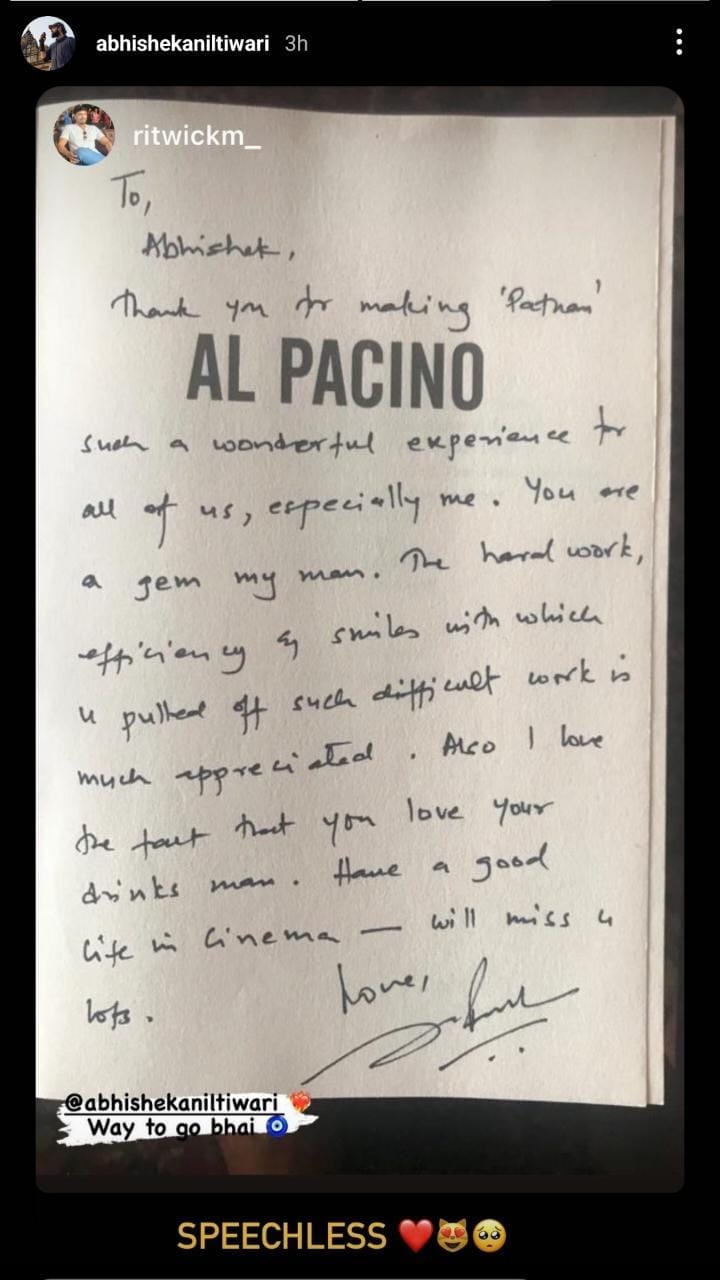 abhishekaniltiwari 3h
ritwickm_
To,
Abhishek,
Thank you for making 'Pathan'
AL PACINO
such a wonderful experience for
all of us, especially me. You are
a gem my man. The hard work,
efficiency & smiles with which
u pulled off such difficult work is
much appreciated. Also I love
the fact that you love your
drinks man. Have a good
life in Cinema — will miss u
lots.
Love,
@abhishekaniltiwari ❤️‍🔥
Way to go bhai 🧿
SPEECHLESS ❤️😻🥺